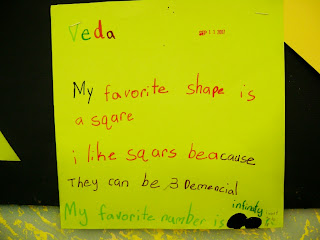 Veda
SEP 11 2007
My favorite shape is
a sqare
i like sqars beacause
They can be 3 Demencial
infinaty
My favorite number is